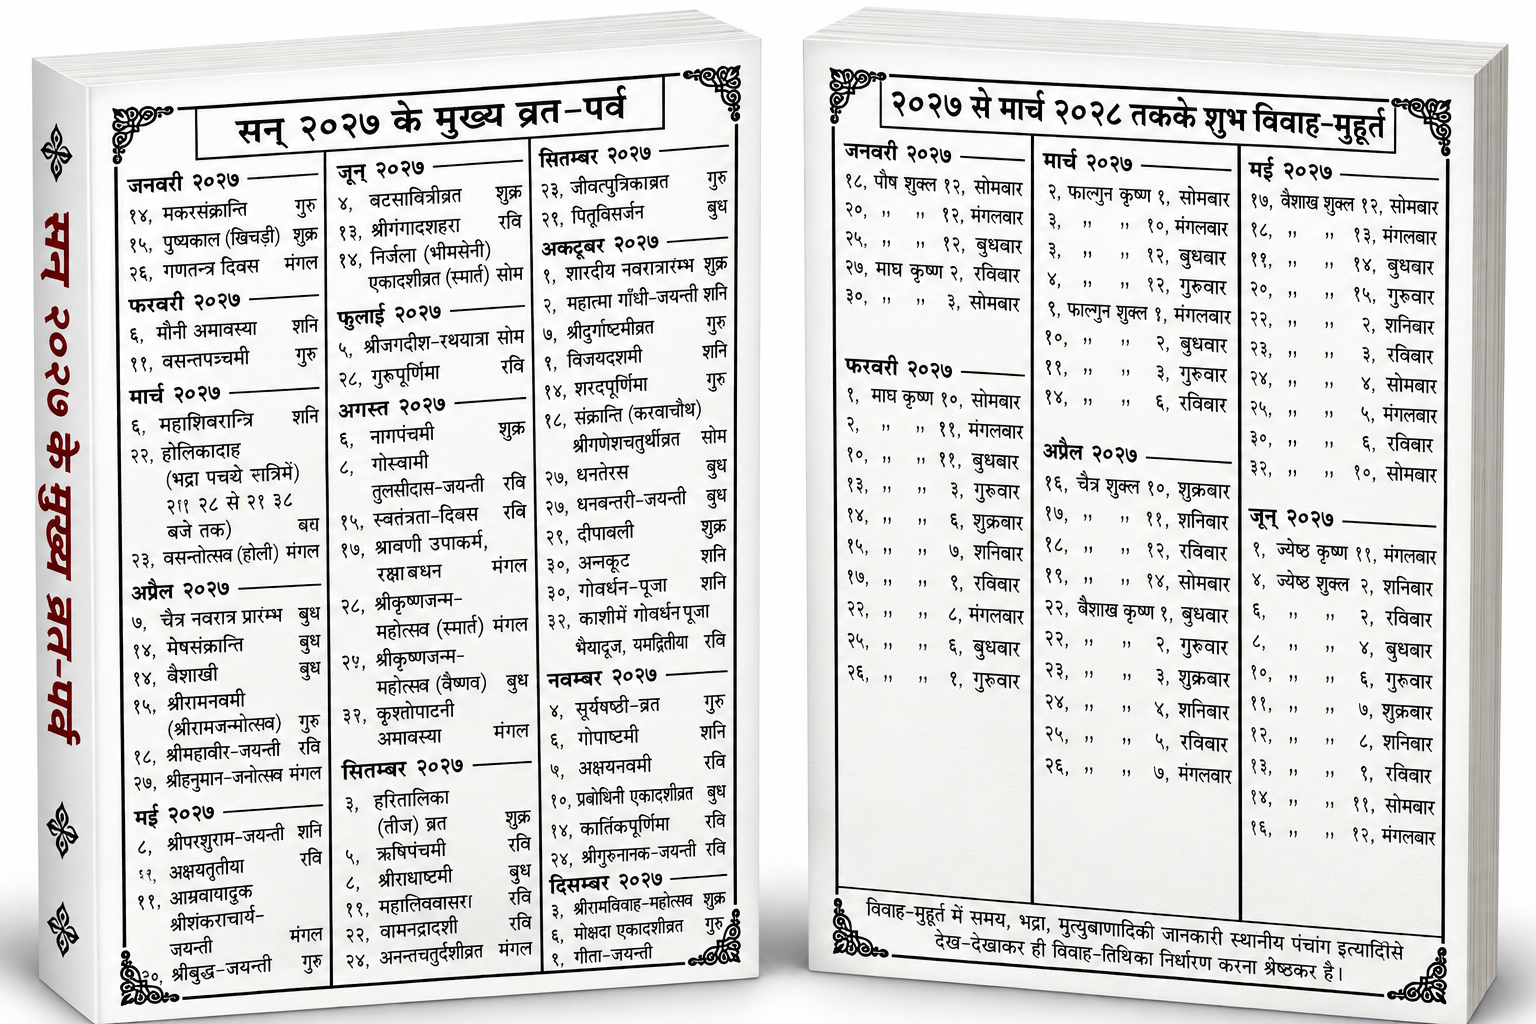 सन् २०२७ के मुख्य व्रत-पर्व
सन् २०२७ के मुख्य व्रत-पर्व
जनवरी २०२७
१४, मकरसंक्रान्ति गुरु
१५, पुष्यकाल (खिचड़ी) शुक्र
२६, गणतन्त्र दिवस मंगल
फरवरी २०२७
६, मौनी अमावस्या शनि
११, वसन्तपञ्चमी गुरु
मार्च २०२७
६, महाशिवरान्त्रि शनि
२२, होलिकादाह
(भद्रा पचये रात्रिमें)
२८ से २१ ३८
बजे तक)
२३, वसन्तोत्सव (होली) मंगल
अप्रैल २०२७
७, चैत्र नवरात्र प्रारंम्भ बुध
१४, मेषसंक्रान्ति बुध
१४, बैशाखी बुध
१५, श्रीरामनवमी
(श्रीरामजन्मोत्सव) गुरु
१८, श्रीमहावीर-जयन्ती रवि
२७, श्रीहनुमान-जनोत्सव मंगल
मई २०२७
८, श्रीपरशुराम-जयन्ती शनि
अक्षयतृतीया रवि
११, आम्रवायादुक
श्रीशंकराचार्य-
जयन्ती मंगल
२०, श्रीबुद्ध-जयन्ती गुरु
जून् २०२७
४, बटसावित्रीव्रत शुक्र
१३, श्रीगंगादशहरा रवि
१४, निर्जला (भीमसेनी)
एकादशीव्रत (स्मार्त) सोम
फुलाई २०२७
५, श्रीजगदीश-रथयात्रा सोम
२८, गुरूपूर्णिमा रवि
अगस्त २०२७
६, नागपंचमी शुक्र
८, गोस्वामी
तुलसीदास-जयन्ती रवि
१५, स्वतंत्रता-दिवस रवि
१७, श्रावणी उपाकर्म,
रक्षाबधन मंगल
२८, श्रीकृष्णजन्म-
महोत्सव (स्मार्त) मंगल
२५, श्रीकृष्णजन्म-
महोत्सव (वैष्णव) बुध
३२, कृश्तोपाटनी
अमावस्या मंगल
सितम्बर २०२७
३, हरितालिका
(तीज) व्रत शुक्र
५, ऋषिपंचमी रवि
८, श्रीराधाष्टमी बुध
११, महालिववासरा रवि
२२, वामनद्रादशी रवि
२४, अनन्तचतुर्दशीव्रत मंगल
सितम्बर २०२७
२३, जीवत्पुत्रिकाव्रत गुरु
२९, पितृविसर्जन बुध
अकटूबर २०२७
१, शारदीय नवरात्रारंम्भ शुक्र
२, महात्मा गाँधी-जयन्ती शनि
७, श्रीदुर्गाष्टमीव्रत गुरु
१, विजयदशमी शनि
१४, शरदपूर्णिमा गुरु
१८, संक्रान्ति (करवाचौथ)
श्रीगणेशचतुर्थीव्रत सोम
२७, धनतेरस बुध
२७, धनबन्तरी-जयन्ती बुध
२९, दीपाबली शुक्र
३०, अन्नकूट शनि
३०, गोवर्धन-पूजा शनि
३२, काशीमें गोवर्धन पूजा
भैयादूज, यमद्वितीया रवि
नवम्बर २०२७
४, सूर्यषष्ठी-व्रत गुरु
६, गोपाष्टमी शनि
५, अक्षयनवमी रवि
१०, प्रबोधिनी एकादशीव्रत बुध
१४, कार्तिकपूर्णिमा रवि
२४, श्रीगुरुनानक-जयन्ती रवि
दिसम्बर २०२७
३, श्रीरामविवाह-महोत्सव शुक्र
६, मोक्षदा एकादशीव्रत गुरु
१, गीता-जयन्ती
२०२७ से मार्च २०२८ तकके शुभ विवाह-मुहूर्त
जनवरी २०२७
१८, पौष शुक्ल १२, सोमबार
२०, ,, ,, १२, मंगलबार
२५, ,, ,, १२, बुधबार
२७, माघ कृष्ण २, रविबार
३०, ,, ,, ३, सोमबार
फरवरी २०२७
१, माघ कृष्ण १०, सोमबार
२, ,, ,, ११, मंगलबार
१०, ,, ,, ११, बुधबार
१३, ,, ,, ३, गुरुवार
१४, ,, ,, ६, शुक्रबार
१५, ,, ,, ७, शनिबार
१७, ,, ,, १, रविबार
२२, ,, ,, ८, मंगलबार
२५, ,, ,, ६, बुधबार
२६, ,, ,, १, गुरुवार
मार्च २०२७
२, फाल्गुन कृष्ण १, सोमबार
३, ,, ,, १०, मंगलबार
३, ,, ,, १२, बुधबार
४, ,, ,, १२, गुरुवार
१, फाल्गुन शुक्ल १, मंगलबार
१०, ,, ,, २, बुधबार
११, ,, ,, ३, गुरुवार
१४, ,, ,, ६, रविबार
अप्रैल २०२७
१६, चैत्र शुक्ल १०, शुक्रबार
१७, ,, ,, ११, शनिबार
१८, ,, ,, १२, रविबार
१९, ,, ,, १४, सोमबार
२२, बैशाख कृष्ण १, बुधबार
२२, ,, ,, २, गुरुवार
२३, ,, ,, ३, शुक्रबार
२४, ,, ,, ४, शनिबार
२५, ,, ,, ५, रविबार
२६, ,, ,, ७, मंगलबार
मई २०२७
१७, वैशाख शुक्ल १२, सोमबार
१८, ,, ,, १३, मंगलबार
११, ,, ,, १४, बुधबार
२०, ,, ,, १५, गुरुवार
२२, ,, ,, २, शनिबार
२३, ,, ,, ३, रविबार
२४, ,, ,, ४, सोमबार
२५, ,, ,, ५, मंगलबार
३०, ,, ,, ६, रविबार
३२, ,, ,, १०, सोमबार
जून् २०२७
१, ज्येष्ठ कृष्ण ११, मंगलबार
४, ज्येष्ठ शुक्ल २, शनिबार
६, ,, ,, २, रविबार
८, ,, ,, ४, बुधबार
१०, ,, ,, ६, गुरुवार
११, ,, ,, ७, शुक्रबार
१२, ,, ,, ८, शनिबार
१३, ,, ,, १, रविबार
१४, ,, ,, ११, सोमबार
१६, ,, ,, १२, मंगलबार
विवाह-मुहूर्त में समय, भद्रा, मुत्युबाणादिकी जानकारी स्थानीय पंचांग इत्यादिीसे
देख-देखाकर ही विवाह-तिथिका निर्धारण करना श्रेष्ठकर है।